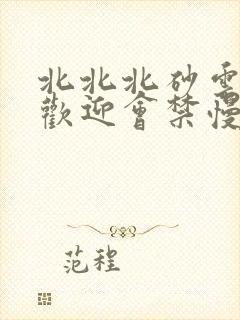 北北北砂雲
歡迎會禁慢
范程